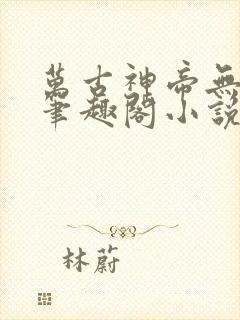 萬古神帝無
筆趣閣小説
林蔚